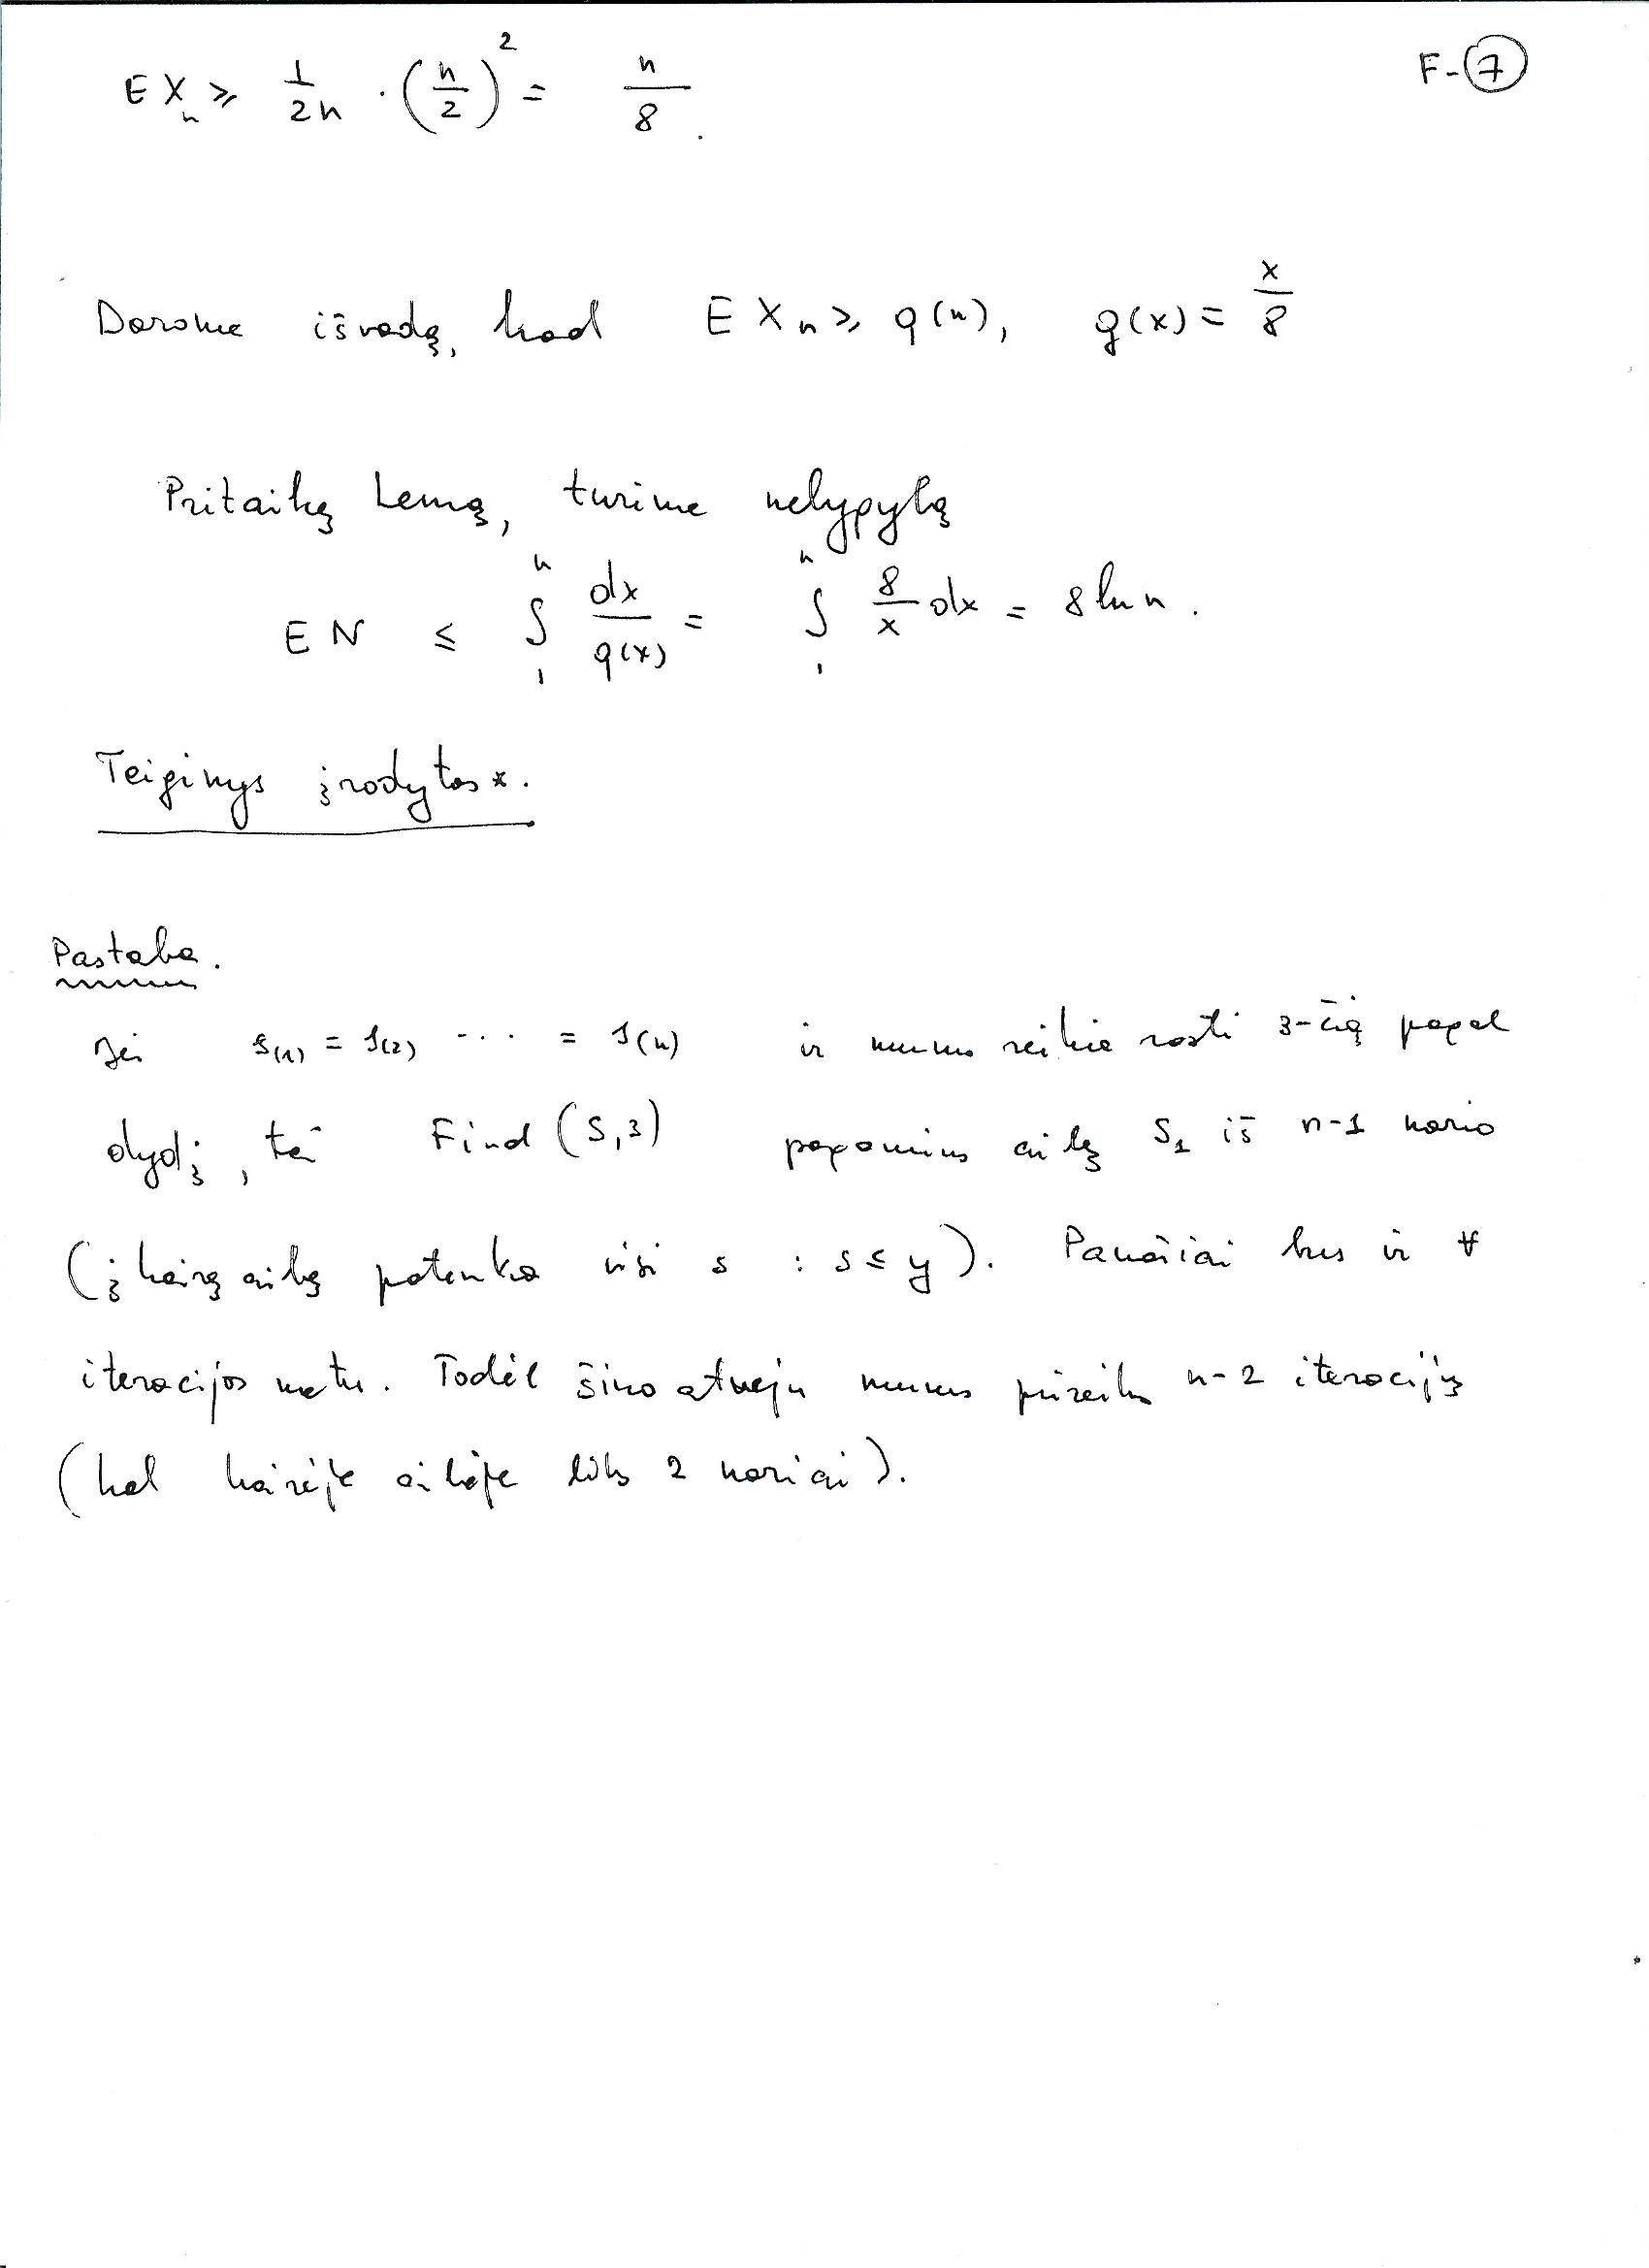 F-7
EXₙ ≥ 1/2n · (n/2)² = n/8.
Darome išvadą, kad EXₙ ≥ g(n), g(x) = x/8
Pritaikę Lemą, turime nelygybę
EN ≤ ∫₁ⁿ dx/g(x) = ∫₁ⁿ 8/x dx = 8 ln n.
Teiginys įrodytas.
Pastaba.
Jei s₍₁₎ = s₍₂₎ ... = s₍ₙ₎ ir mums reikia rasti 3-čią pagal
dydį, tai Find (S,3) pagamins aibę S₁ iš n-1 nario
(į kairę aibę patenka visi s : s ≤ y). Panašiai bus ir ∀
iteracijos metu. Todėl šiuo atveju mums prireiks n-2 iteracijų
(kol kairėje aibėje liks 2 nariai).